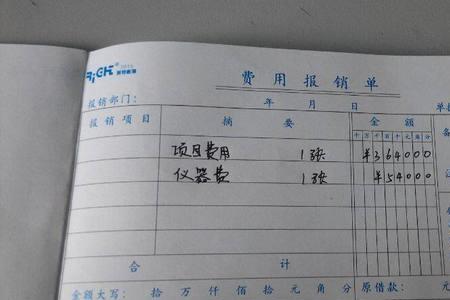 费用报销单
报销部门: 年 月 日 单
报销项目 摘要 金额
十 万 千 百 十 元 角 分
项目费用 1张 ¥364000
仪器费 1张 ¥54000
合 计
金额大写: 拾 万 仟 佰 拾 元 角 分 原借款: 元